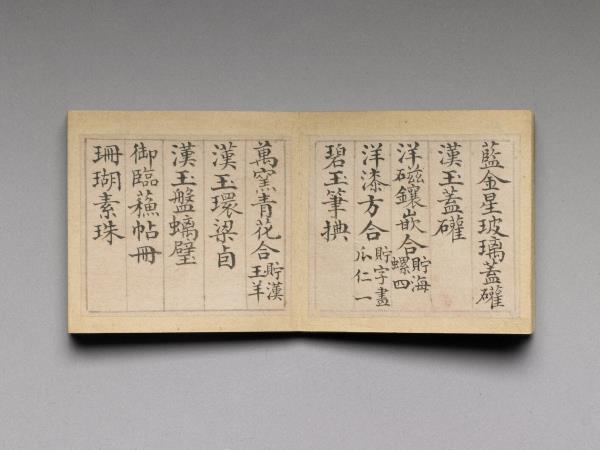 藍金星玻璃蓋礶
漢玉蓋礶
洋磁鑲嵌合貯海螺四
洋漆方合貯字畫瓜仁一
碧玉筆捵
萬窯青花合貯漢玉羊
漢玉環梁卣
漢玉盤螭璧
御臨蘓帖冊
珊瑚素珠